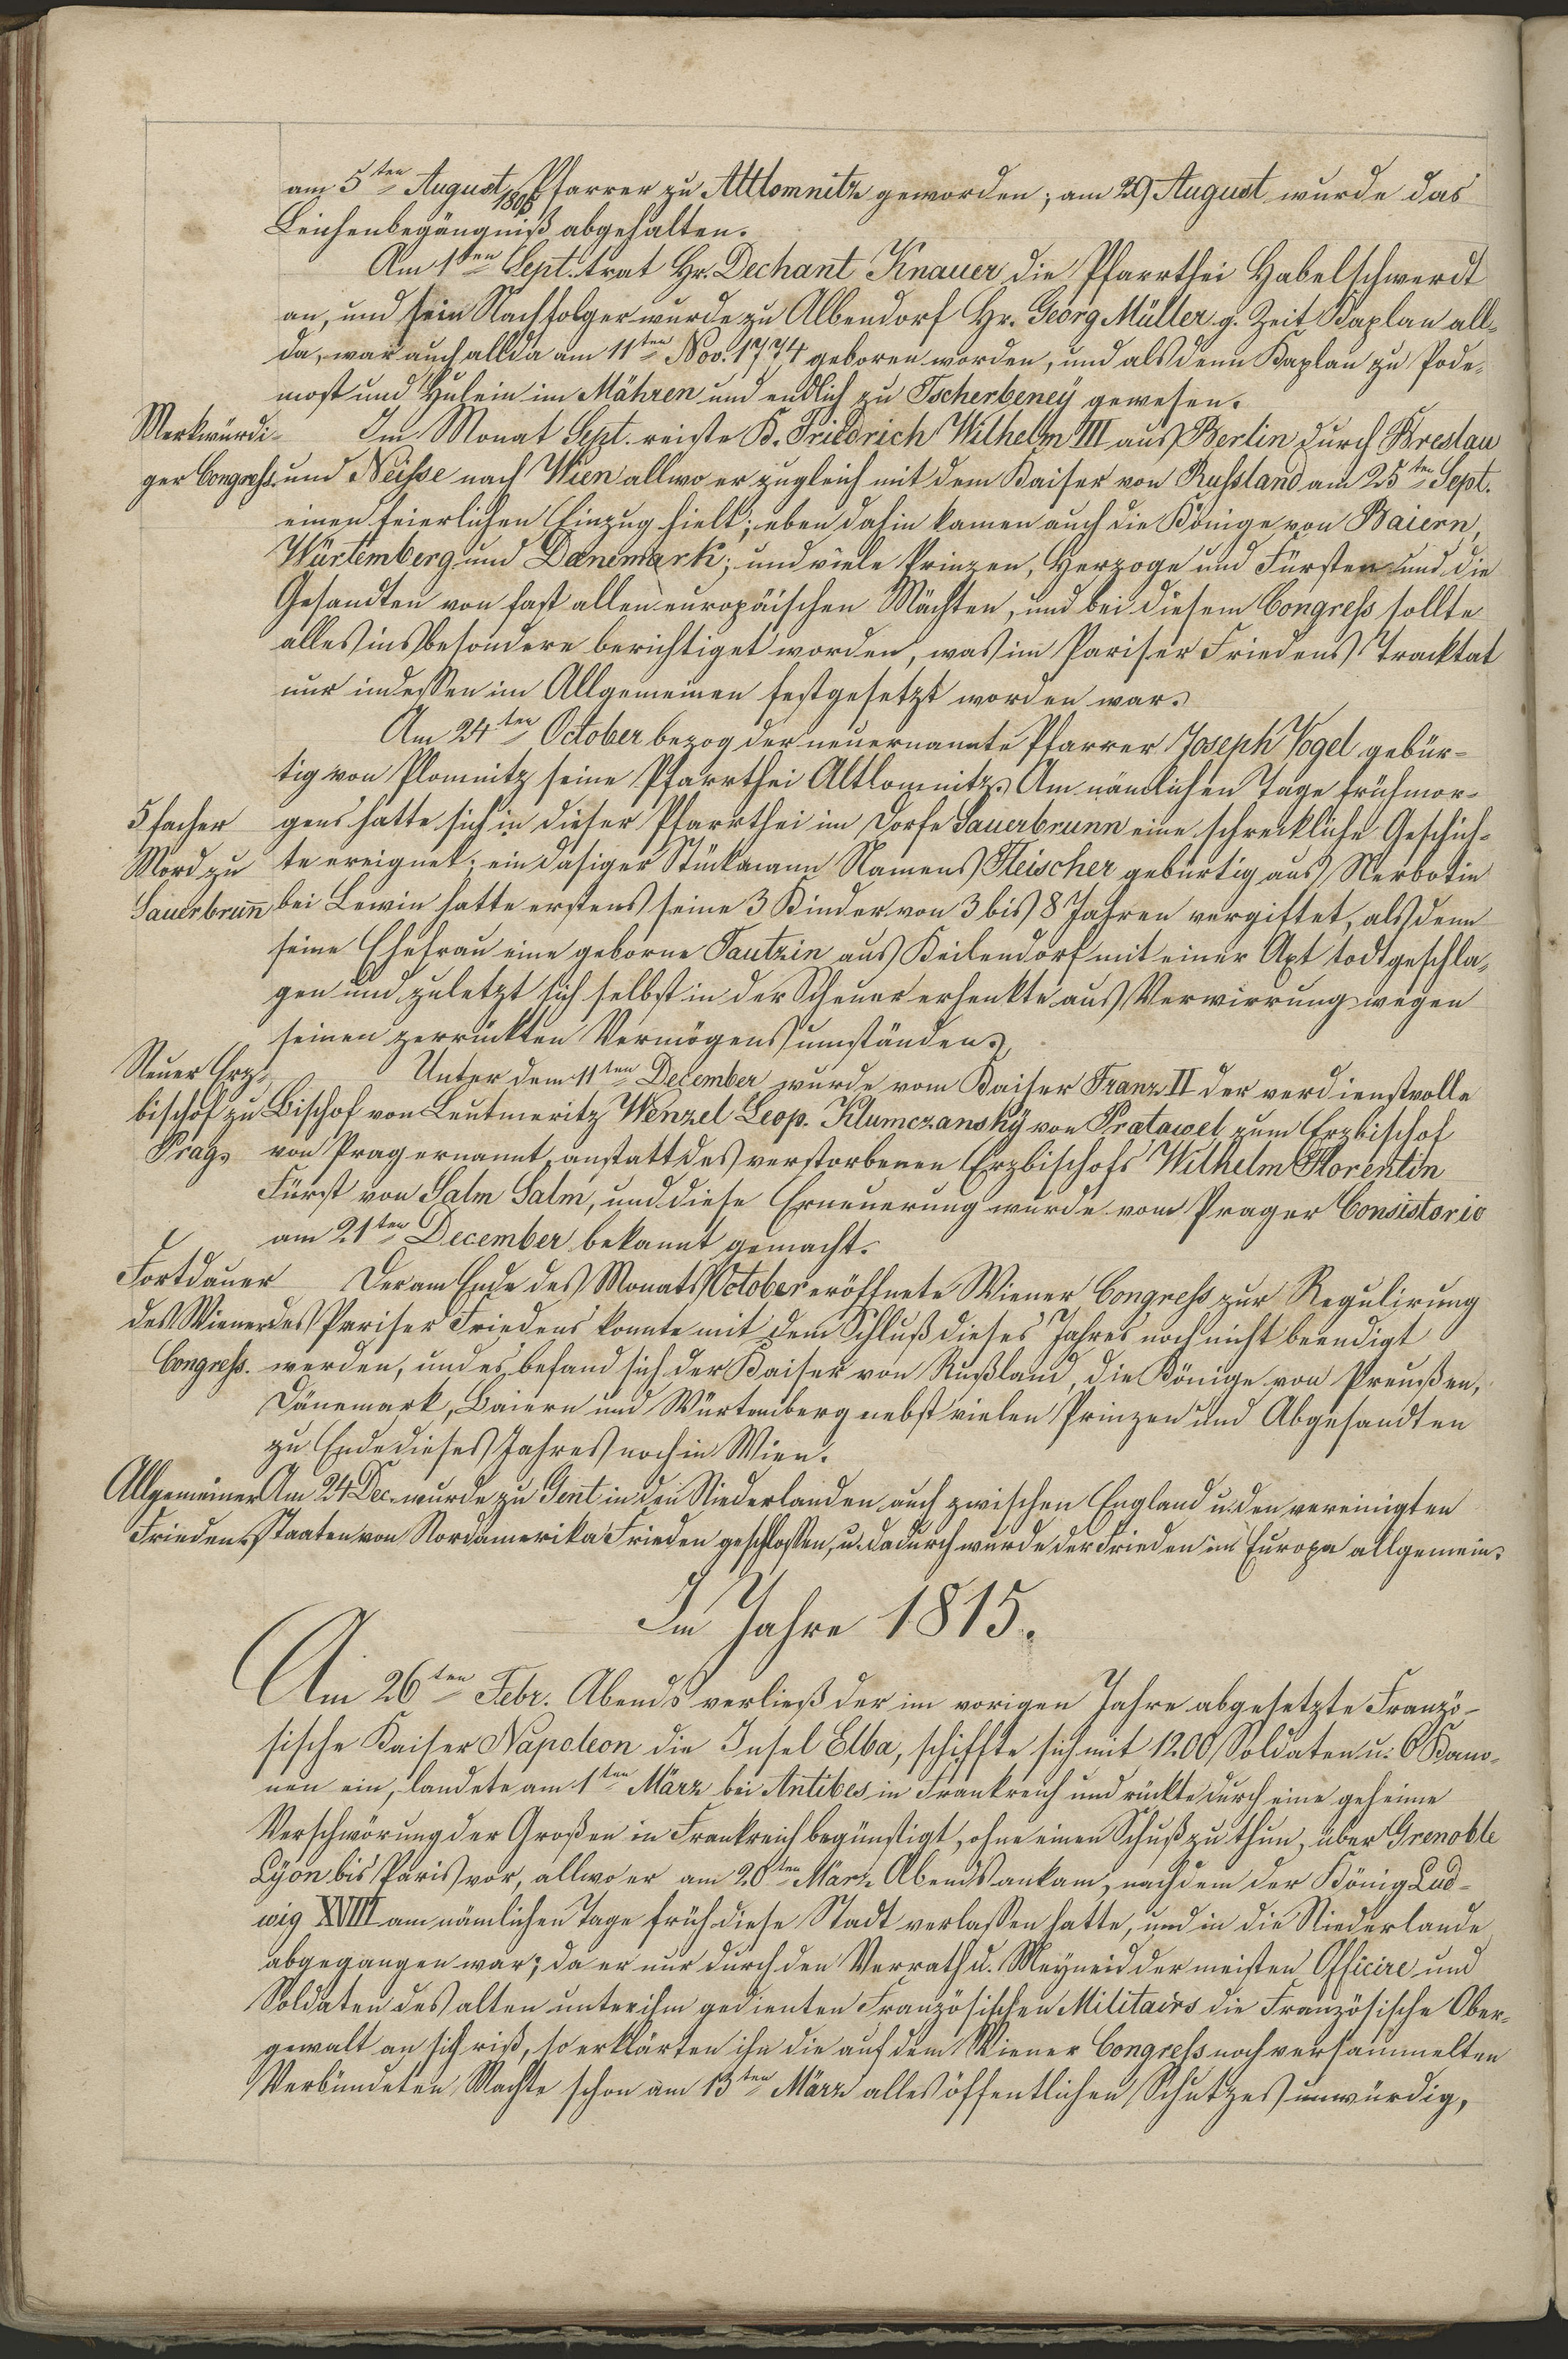 am 5ten August 1805 Pfarrer zu Altlomnitz geworden; am 29 August wurde das
Leichenbegängniß abgehalten.
Am 1ten Sept. trat Hr. Dechant Knauer die Pfarrthei Habelschwerdt
an, und sein Nachfolger wurde zu Albendorf Hr. Georg Müller z. Zeit Kaplan all-
da, war auch allda am 11ten Nov. 1774 geboren worden, und alsdenn Kaplan zu Pode-
most und Hulein im Mähren und endlich zu Tscherbeneÿ gewesen.
Merkwürdi-
ger Congreß.
Im Monat Sept. reiste K. Friedrich Wilhelm III aus Berlin durch Breslau
und Neiße nach Wien allwo er zugleich mit dem Kaiser von Rußland am 25ten Sept.
einen feierlichen Einzug hielt; eben dahin kamen auch die Könige von Baiern,
Würtemberg und Danemark; und viele Prinzen, Herzoge und Fürsten und die
Gesandten von fast allen europäischen Mächten, und bei diesem Congreß sollte
alles insbesondere berichtiget worden, was im Pariser Friedens Tracktat
nur indessen im Allgemeinen festgesetzt worden war.
Am 24ten October bezog der neuernannte Pfarrer Joseph Vogel gebür-
tig von Plomnitz seine Pfarrthei Altlomnitz. Am nämlichen Tage frühmor-
5 facher
Mord zu
Sauerbrun̄
gens hatte sich in dieser Pfarrthei im Dorfe Sauerbrunn eine schreckliche Geschich-
te ereignet; ein dasiger Stückmann Namens Fleischer gebürtig aus Nerbotin
bei Lewin hatte erstens seine 3 Kinder von 3 bis 8 Jahren vergiftet, alsdenn
seine Ehefrau eine geborne Tautzin aus Keilendorf mit einer Axt todtgeschla-
gen und zuletzt sich selbst in der Scheuer erhenkte aus Verwirrung wegen
seinen zerrückten Vermögensumständen.
Neuer Erz-
bischof zu
Prag.
Unter dem 11ten December wurde vom Kaiser Franz II der verdienstvolle
Bischof von Leutmeritz Wenzel Leop. Klumczanskÿ von Pratawel zum Erzbischof
von Prag ernannt, anstatt des verstorbenen Erzbischofs Wilhelm Florentin
Fürst von Salm Salm, und diese Erneuerung wurde vom Prager Consistorio
am 21ten December bekannt gemacht.
Fortdauer
des Wiener
Congreß.
Der am Ende des Monats October eröffnete Wiener Congreß zur Regulirung
des Pariser Friedens konnte mit dem Schluß dieses Jahres noch nicht beendigt
werden, und es befand sich der Kaiser von Rußland, die Könige von Preußen,
Dänemark, Baiern und Würtemberg nebst vielen Prinzen und Abgesandten
zu Ende dieses Jahres noch in Wien.
Allgemeiner
Frieden.
Am 24 Dec. wurde zu Gent in den Niederlanden auch zwischen England u. den vereinigten
Staaten von Nordamerika Frieden geschlossen, u. dadurch wurde der Frieden in Europa allgemein.
Im Jahre 1815.
Am 26ten Febr. Abends verließ der im vorigen Jahre abgesetzte Franzö-
sische Kaiser Napoleon die Insel Elba, schiffte sich mit 1200 Soldaten u. 6 Kano-
nen ein, landete am 1ten März bei Antibes in Frankreich und rückte durch eine geheime
Verschwörung der Großen in Frankreich begünstigt, ohne einen Schuß zu thun, über Grenoble
Lÿon bis Paris vor, allwo er am 20ten März Abends ankam, nachdem der König Lud-
wig XVIII am nämlichen Tage früh diese Stadt verlassen hatte, und in die Niederlande
abgegangen war; da er nur durch den Verrath u. Meyneid der meisten Officire und
Soldaten des alten unter ihm gedienten Französischen Militairs die Französische Ober-
gewalt an sich riß, so erklärten ihn die auf dem Wiener Congreß noch versammelten
Verbündeten Machte schon am 13ten März alles öffentlichen Schutzes unwürdig,